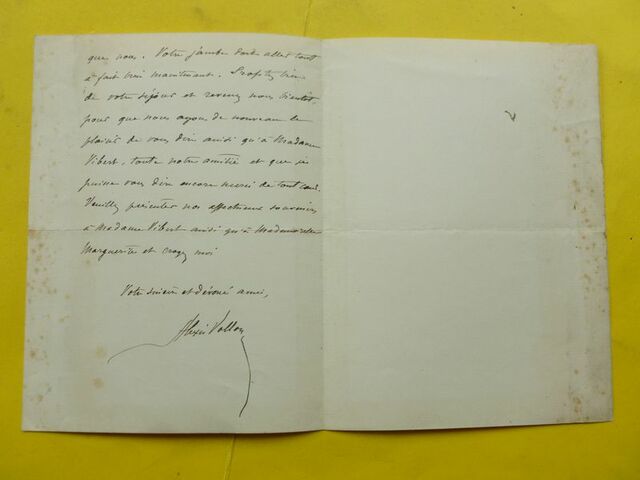 que nous. Votre jambe doit aller tout
à fait bien maintenant. Profitez bien
de votre séjour et revenez nous bientôt
pour que nous ayons de nouveau le
plaisir de vous dire ainsi qu'à Madame
Vibert, toute notre amitié et que je
puisse vous dire encore merci de tout cœur.
Veuillez présenter nos affectueux souvenirs
à Madame Vibert ainsi qu'à Mademoiselle
Marguerite et croyez moi
Votre sincère et dévoué ami,
Alexis Vollon